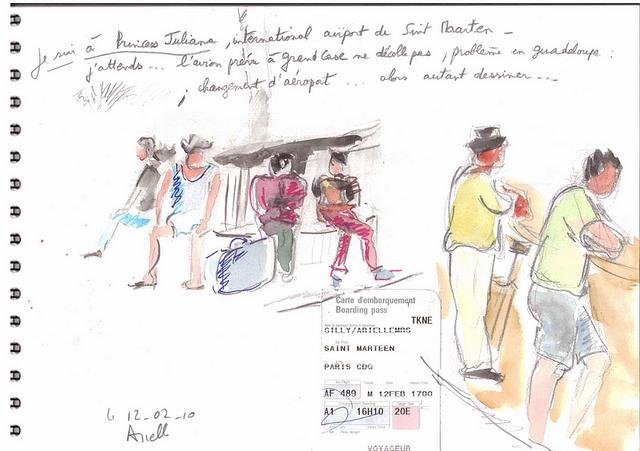 Je suis à Princess Juliana, international airport de Sint Maarten _
j'attends... l'avion prévu à grand case ne décolle pas, problème en guadeloupe :
changement d'aéroport ... alors autant dessiner...
Carte d'embarquement
Boarding pass
TKNE
GILLY/ARIELLEMRS
SAINT MARTEEN
PARIS CDG
AF 489 M 12FEB 1700
A1 16H10 20E
VOYAGEUR
12-02-10
Ariell